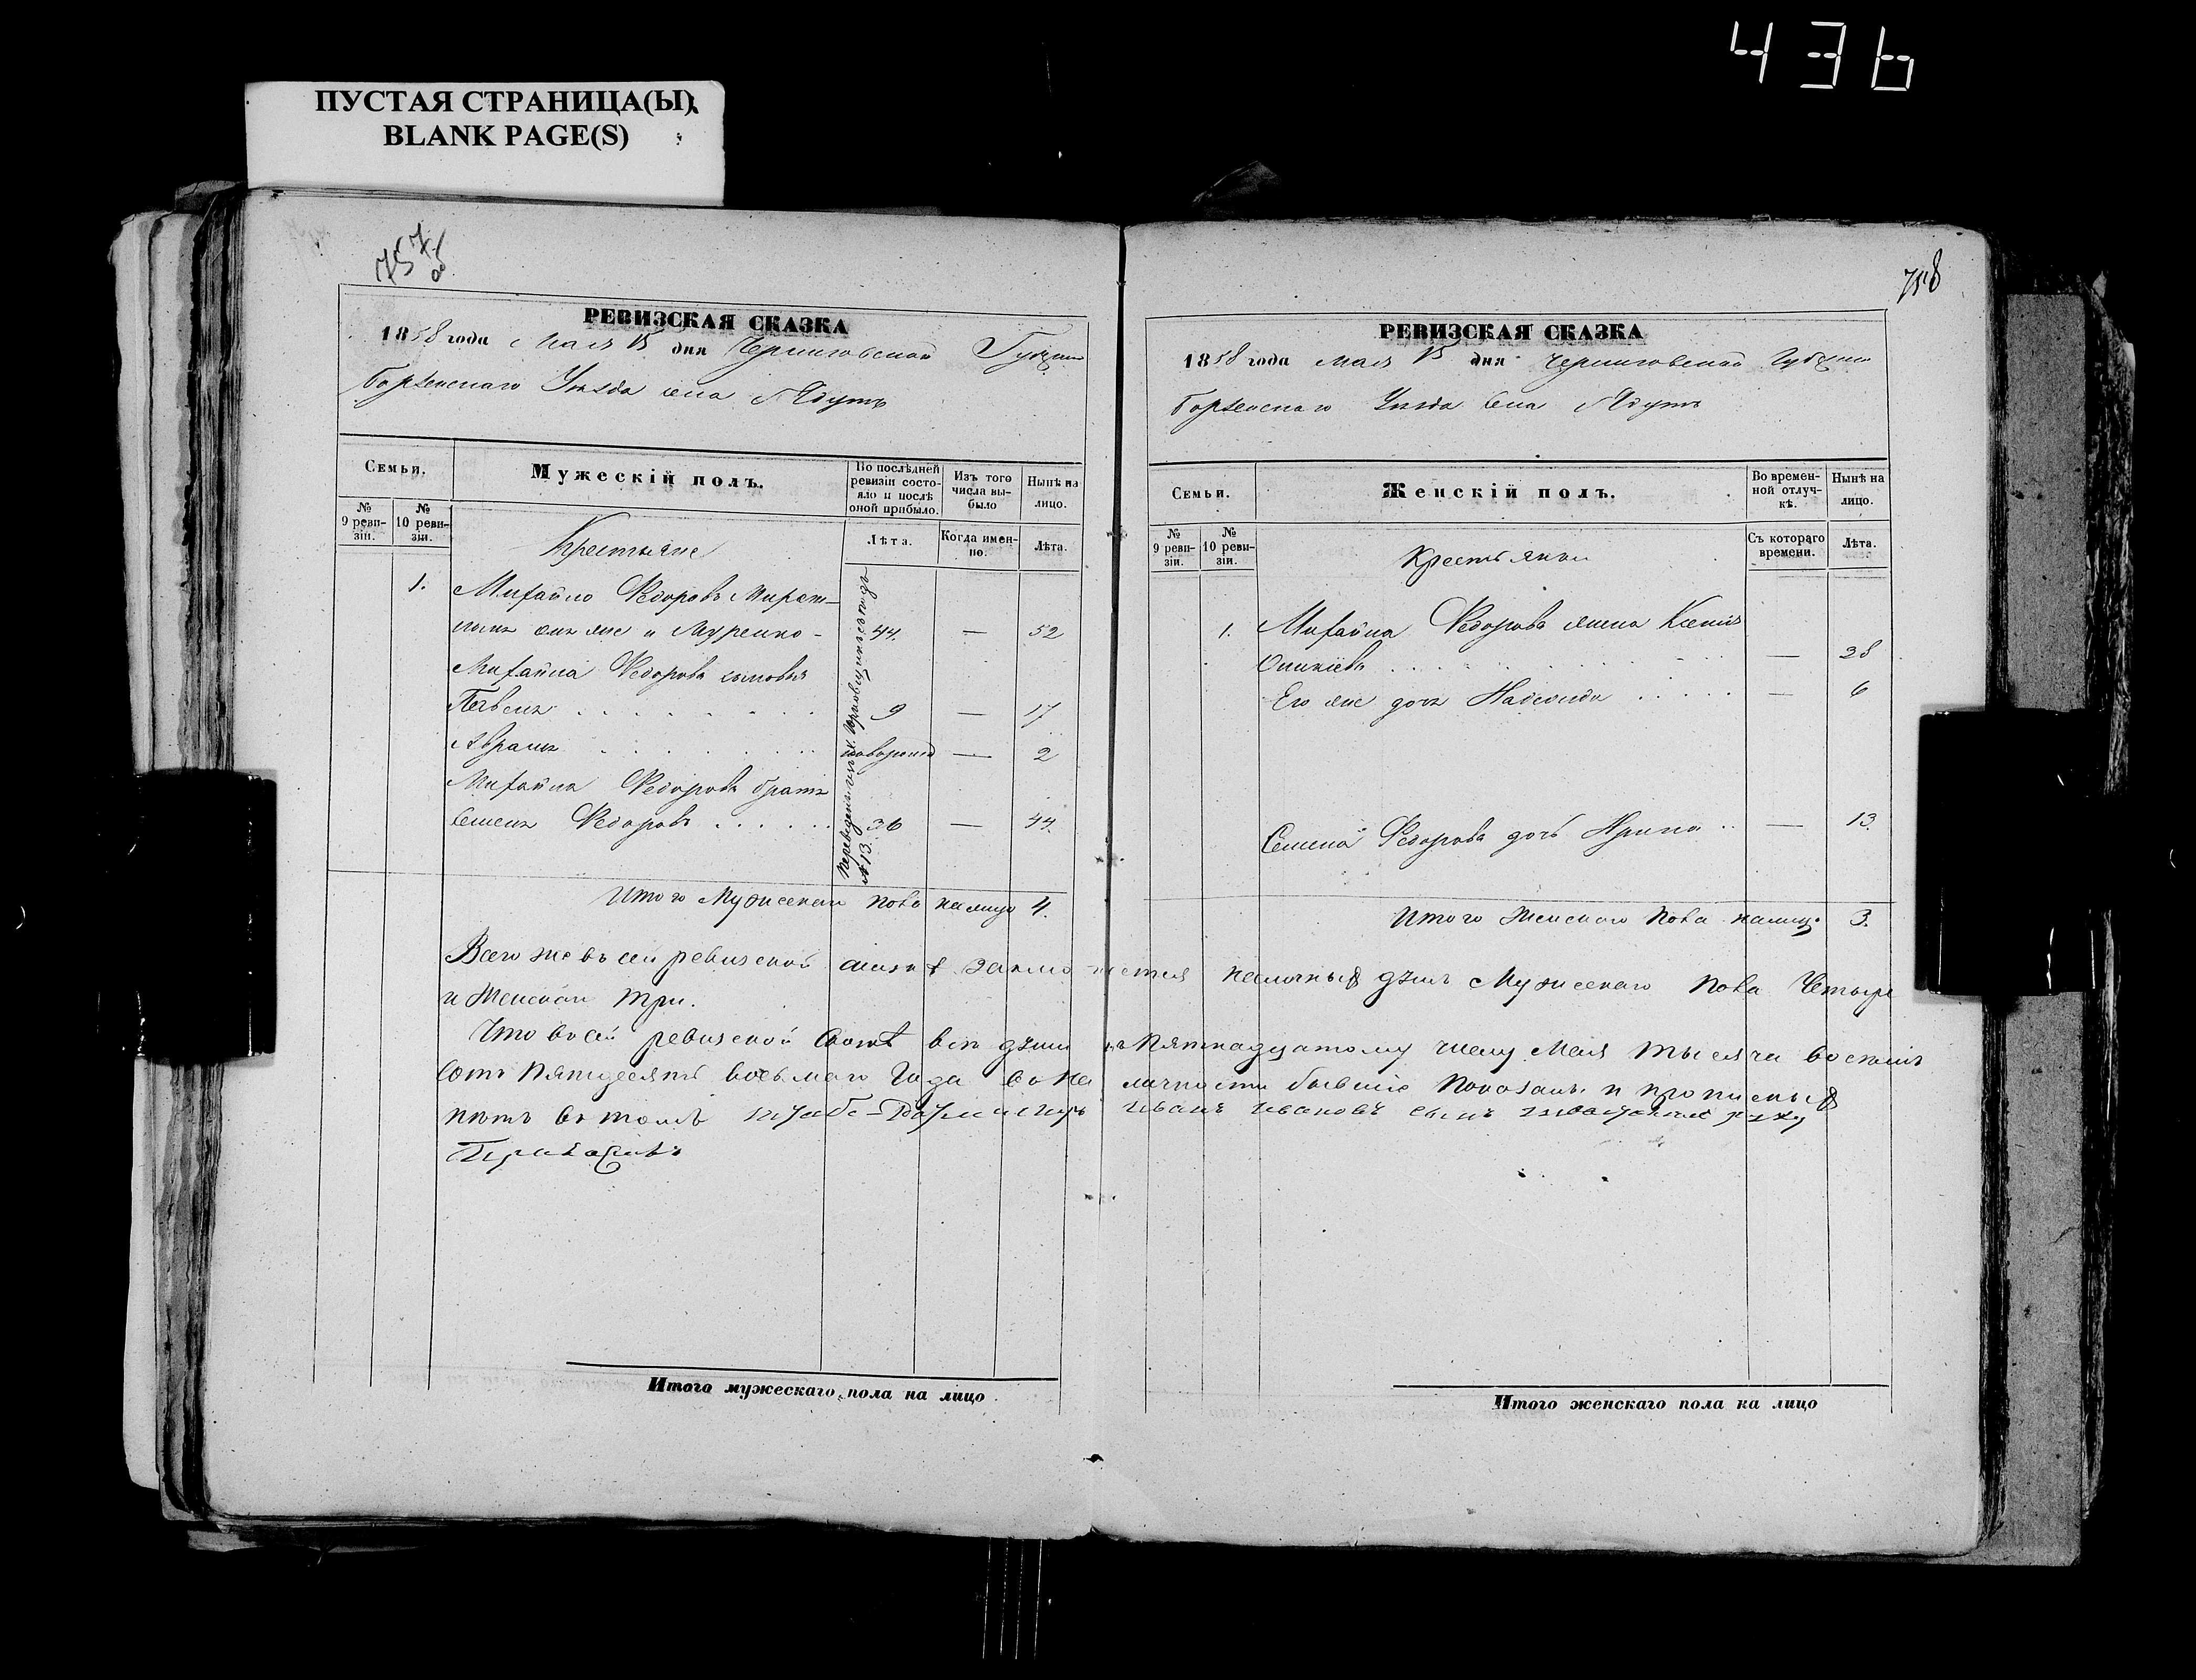 436
ПУСТАЯ СТРАНИЦА(Ы)
BLANK PAGE(S)
757 об
РЕВИЗСКАЯ СКАЗКА
1858 года Мая 15 дня Черниговской Губерніи
Борзенскаго Уѣзда села Ядутъ
Семьи.
Мужескій полъ.
Во послѣдней ревизіи состояло и послѣ оной прибыло.
Изъ того числа выбыло
Нынѣ на лицо.
№ 9 ревизіи.
№ 10 ревизіи.
Лѣта.
Когда именно.
Лѣта.
Крестьяне
1. Михайло Федоровъ
онъ же и 44. — 52
Михайла Федорова сыновья
Павелъ 9 — 17
Аврамъ новорожд — 2
Михайла Федорова братъ
Семенъ Федоровъ 36 — 44.
Переведены изъ
№ 13.
Итого Мужескаго пола налицо 4.
758
РЕВИЗСКАЯ СКАЗКА
1858 года Мая 15 дня Черниговской Губерніи
Борзенскаго Уѣзда села Ядутъ
Семьи.
Женскій полъ.
Во временной отлучкѣ.
Нынѣ на лицо.
№ 9 ревизіи.
№ 10 ревизіи.
Съ котораго времени.
Лѣта.
Крестьянки
1. Михайла Федорова жена Ксенія
— 38
Его же дочь Надежда — 6
Семена Федорова дочь Ирина — 13.
Итого Женскаго пола налицо 3.
Всего же въ сей ревизской сказкѣ заключается наличныхъ душъ Мужескаго пола Четыре
и Женскаго три.
Что въ сей ревизской сказкѣ всѣ души къ Пятнадцатому числу Мая тысяча восемь
сотъ пятдесятъ восьмаго года въ наличности бывшіе показаны и прописныхъ
нѣтъ въ томъ Штабс-Ротмистръ Иванъ Ивановъ сынъ руку
Итого мужескаго пола на лицо
Итого женскаго пола на лицо